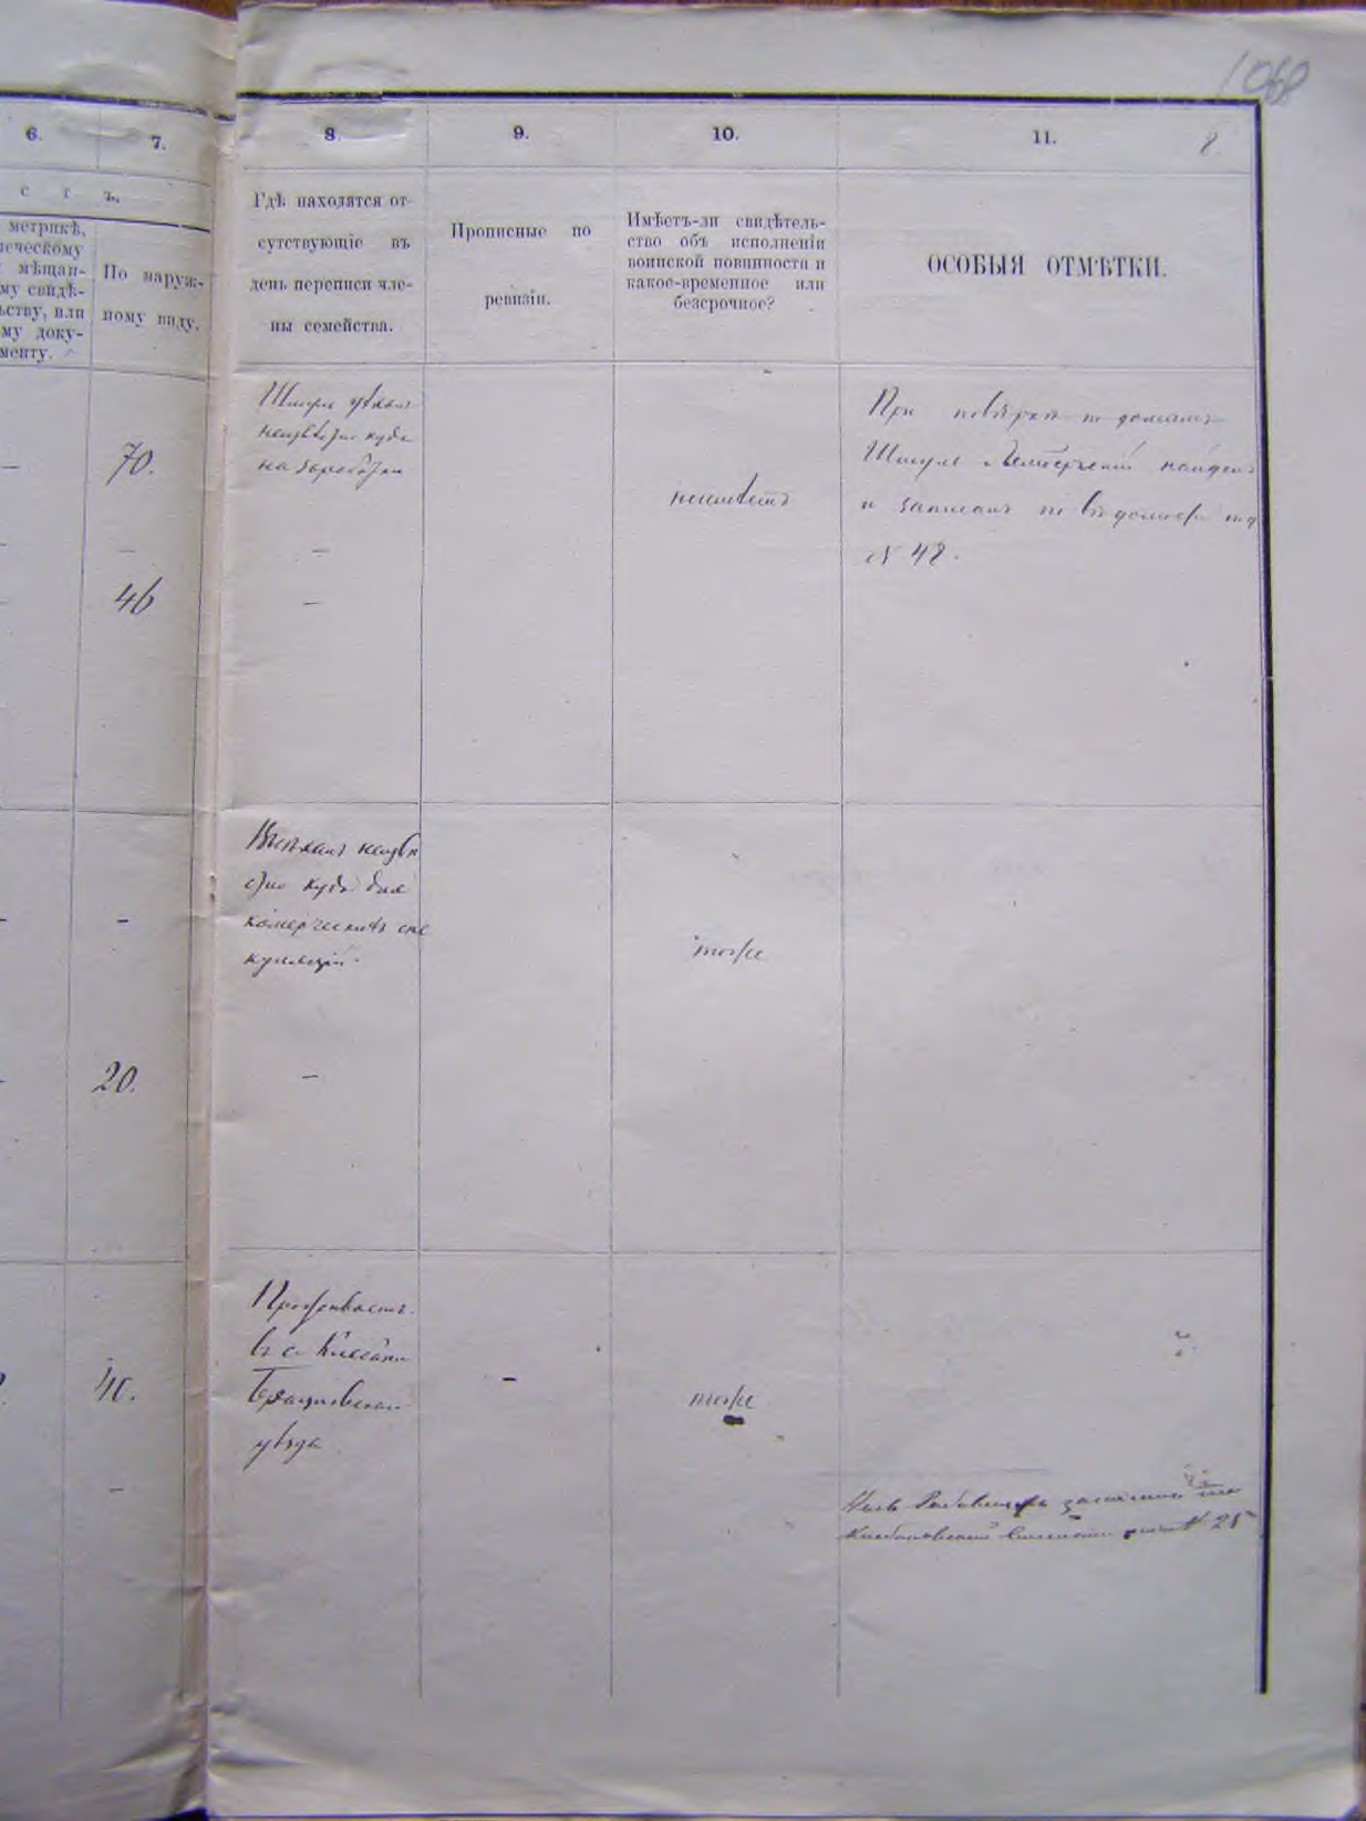 6.
7.
с т ъ.
метрикѣ,
мѣщан-
му свидѣ-
ьству, или
му доку-
менту.
По наруж-
ному виду.
8.
9.
10.
11.
Гдѣ находятся от-
сутствующіе въ
день переписи чле-
ны семейства.
Прописные по
ревизіи.
Имѣетъ-ли свидѣтель-
ство объ исполненіи
воинской повинности и
какое-временное или
безсрочное?
ОСОБЫЯ ОТМѢТКИ.
70.
46
Шмуль уѣхалъ
неизвѣстно куда
на заработки
неимѣетъ
При повѣркѣ по домамъ
Шмуль найденъ
и записанъ по вѣдомости подъ
№ 48.
20.
Выѣхалъ неизвѣ
стно куда для
комерческихъ спе
куляцій.
тоже
40.
Проживаетъ
въ с.
уѣзда
тоже
записанъ по
№ 25